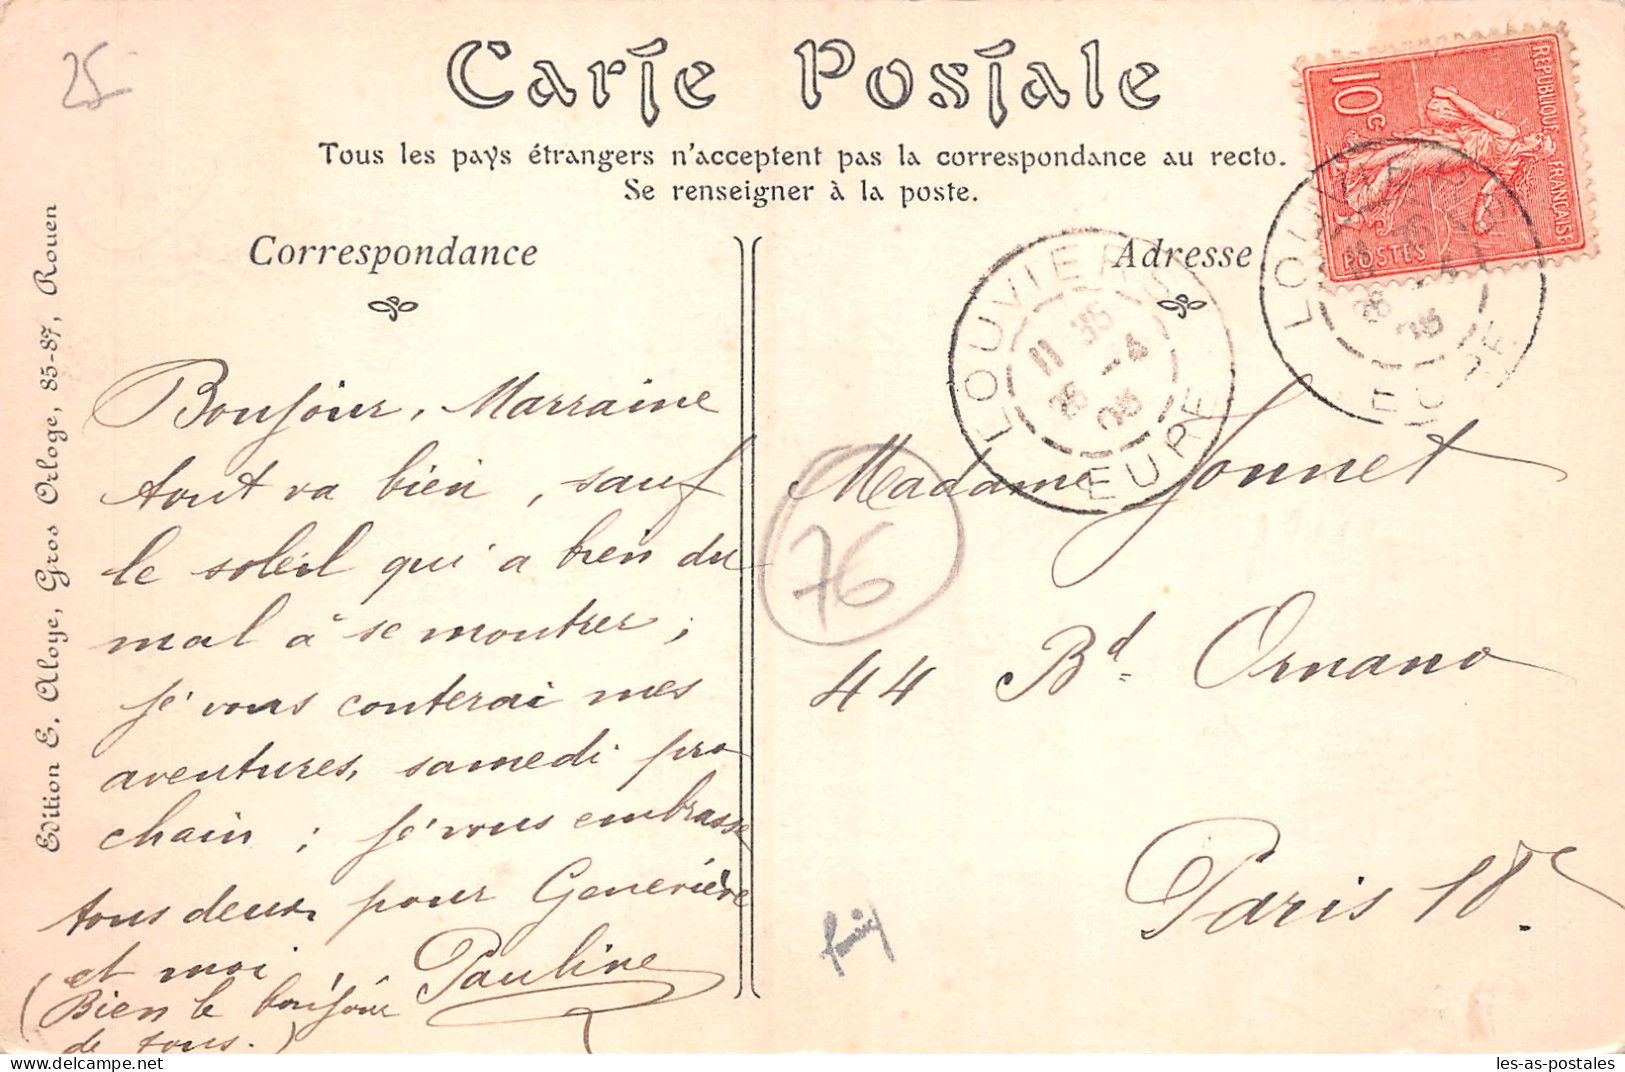 25
Carte Postale
Tous les pays étrangers n'acceptent pas la correspondance au recto.
Se renseigner à la poste.
Correspondance
Adresse
Edition E. Aloye, Gros Orloge, 85-87, Rouen
RÉPUBLIQUE FRANÇAISE
10c
POSTES
LOUVIERS
11 35
26 -4
08
EURE
LOUVIERS
EURE
Bonjour, Marraine
tout va bien, sauf
le soleil qui a bien du
mal à se montrer;
je vous conterai mes
aventures, samedi pro
chain; je vous embrasse
tous deux pour Geneviève
et moi Pauline
(Bien le bonjour
de tous.)
76
Madame Jonnet
44 Bd. Ornano
Paris 18e.
les-as-postales